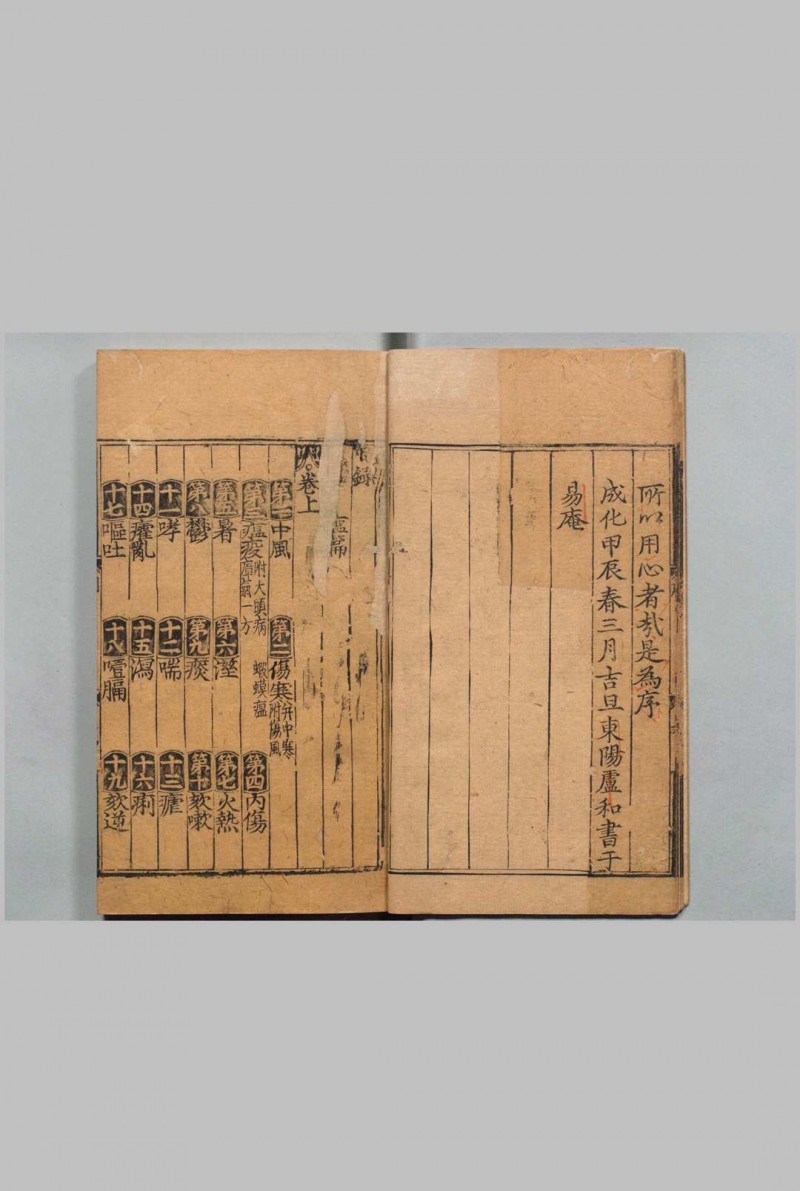 所以用心者哉是為序
成化甲辰春三月吉旦東陽盧和書于
易庵
錄
卷上
第一中風 第二傷寒 并中寒附傷風
第三瘟疫 附大頭病 蝦蟆瘟 一方 第四內傷
第五暑 第六溼 第七火熱
第八鬱 第九痰 第十欬嗽
十一哮 十二喘 十三瘧
十四癨亂 十五瀉 十六痢
十七嘔吐 十八噎膈 十九欬逆